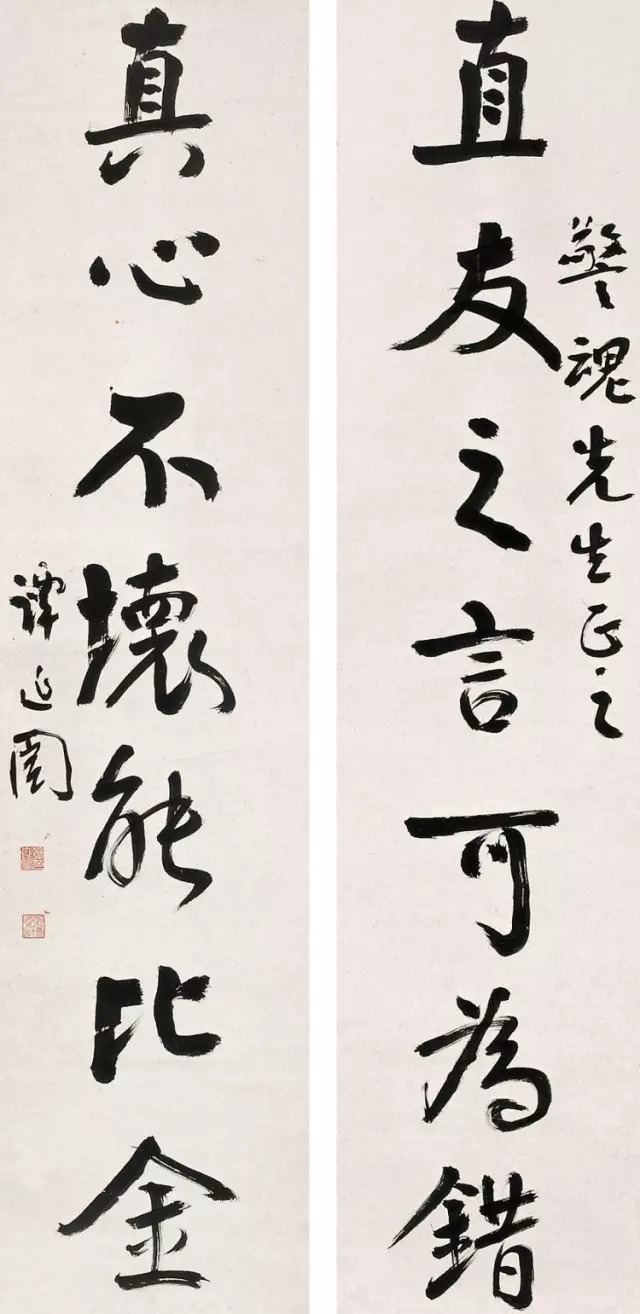 警魂先生正之
直友之言可為錯
真心不壞能比金
譚延闓